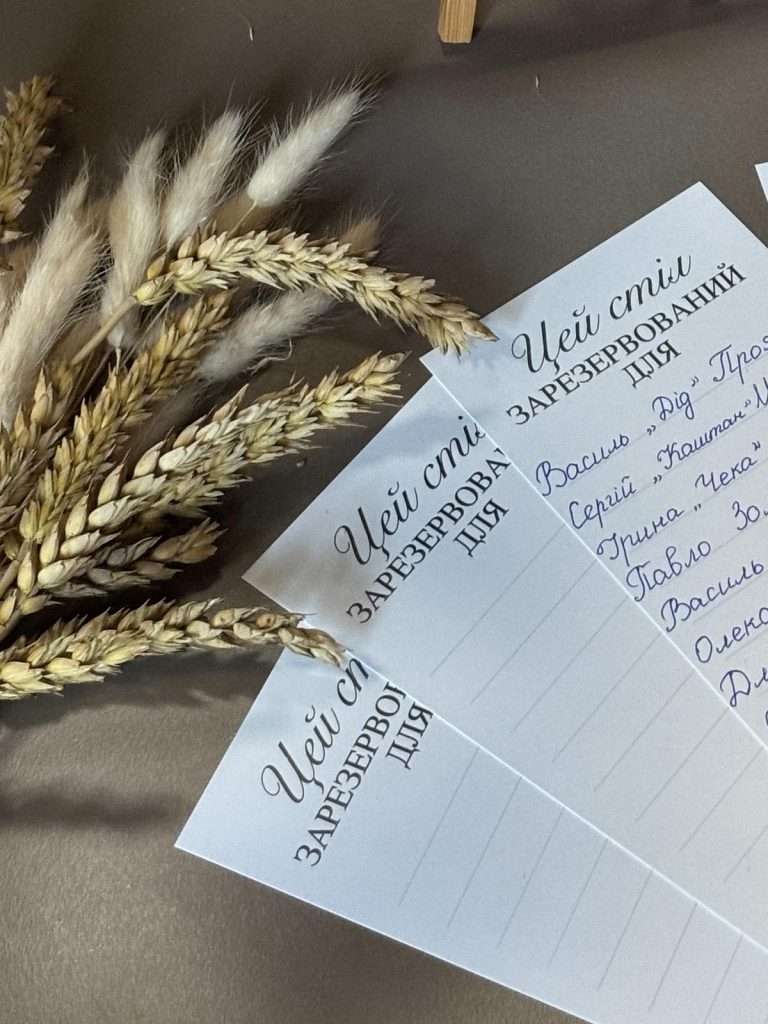 Цей стіл
ЗАРЕЗЕРВОВАНИЙ
ДЛЯ
Василь „Дід”
Сергій „Каштан”
Ірина „Чека”
Павло
Василь
Цей
ЗАРЕЗЕРВОВА
ДЛЯ
Цей
ЗАРЕЗЕРВО
ДЛЯ